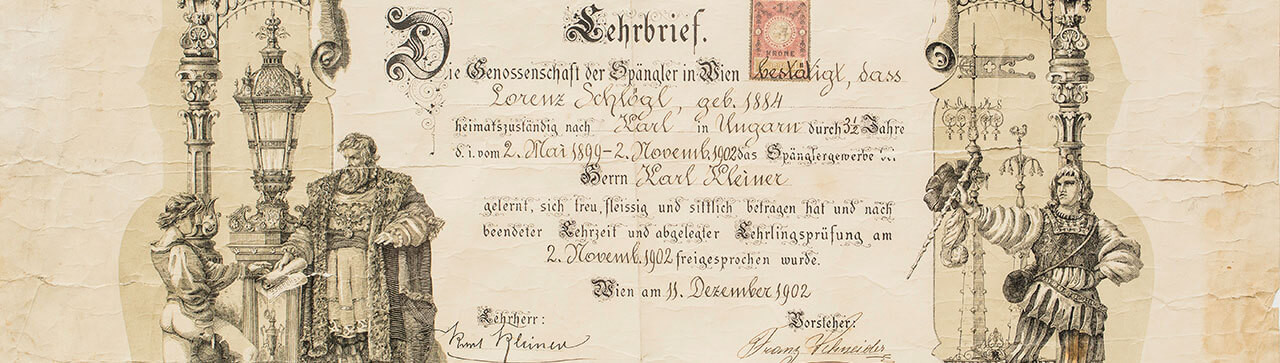 Lehrbrief.
1
KRONE
Die Genossenschaft der Spängler in Wien bestätigt, dass
Lorenz Schlögl, geb. 1884
heimatszuständig nach Karl in Ungarn durch 3½ Jahre
d. i. vom 2. Mai 1899–2. Novemb. 1902 das Spänglergewerbe bei
Herrn Karl Kleiner
gelernt, sich treu, fleissig und sittlich betragen hat und nach
beendeter Lehrzeit und abgelegter Lehrlingsprüfung am
2. Novemb. 1902 freigesprochen wurde.
Wien am 11. Dezember 1902
Lehrherr: Vorsteher:
Karl Kleiner Franz Schneider